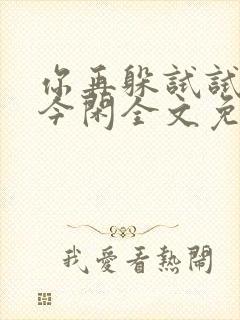 你再躲试试
今闲全文免
我愛看熱鬧